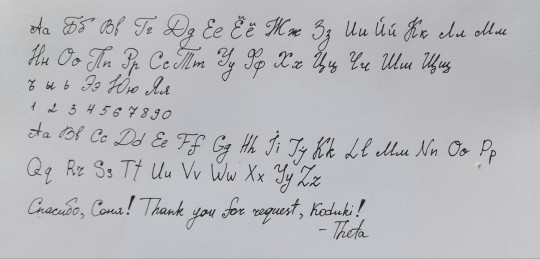 Аа Бб Вв Гг Дд Ее Ёё Жж Зз Ии Йй Кк Лл Мм
Нн Оо Пп Рр Сс Тт Уу Фф Хх Цц Чч Шш Щщ
ъ ы ь Ээ Юю Яя
1 2 3 4 5 6 7 8 9 0
Aa Bb Cc Dd Ee Ff Gg Hh Ii Jj Kk Ll Mm Nn Oo Pp
Qq Rr Ss Tt Uu Vv Ww Xx Yy Zz
Спасибо, Соня! Thank you for request, Koduki!
- Theta